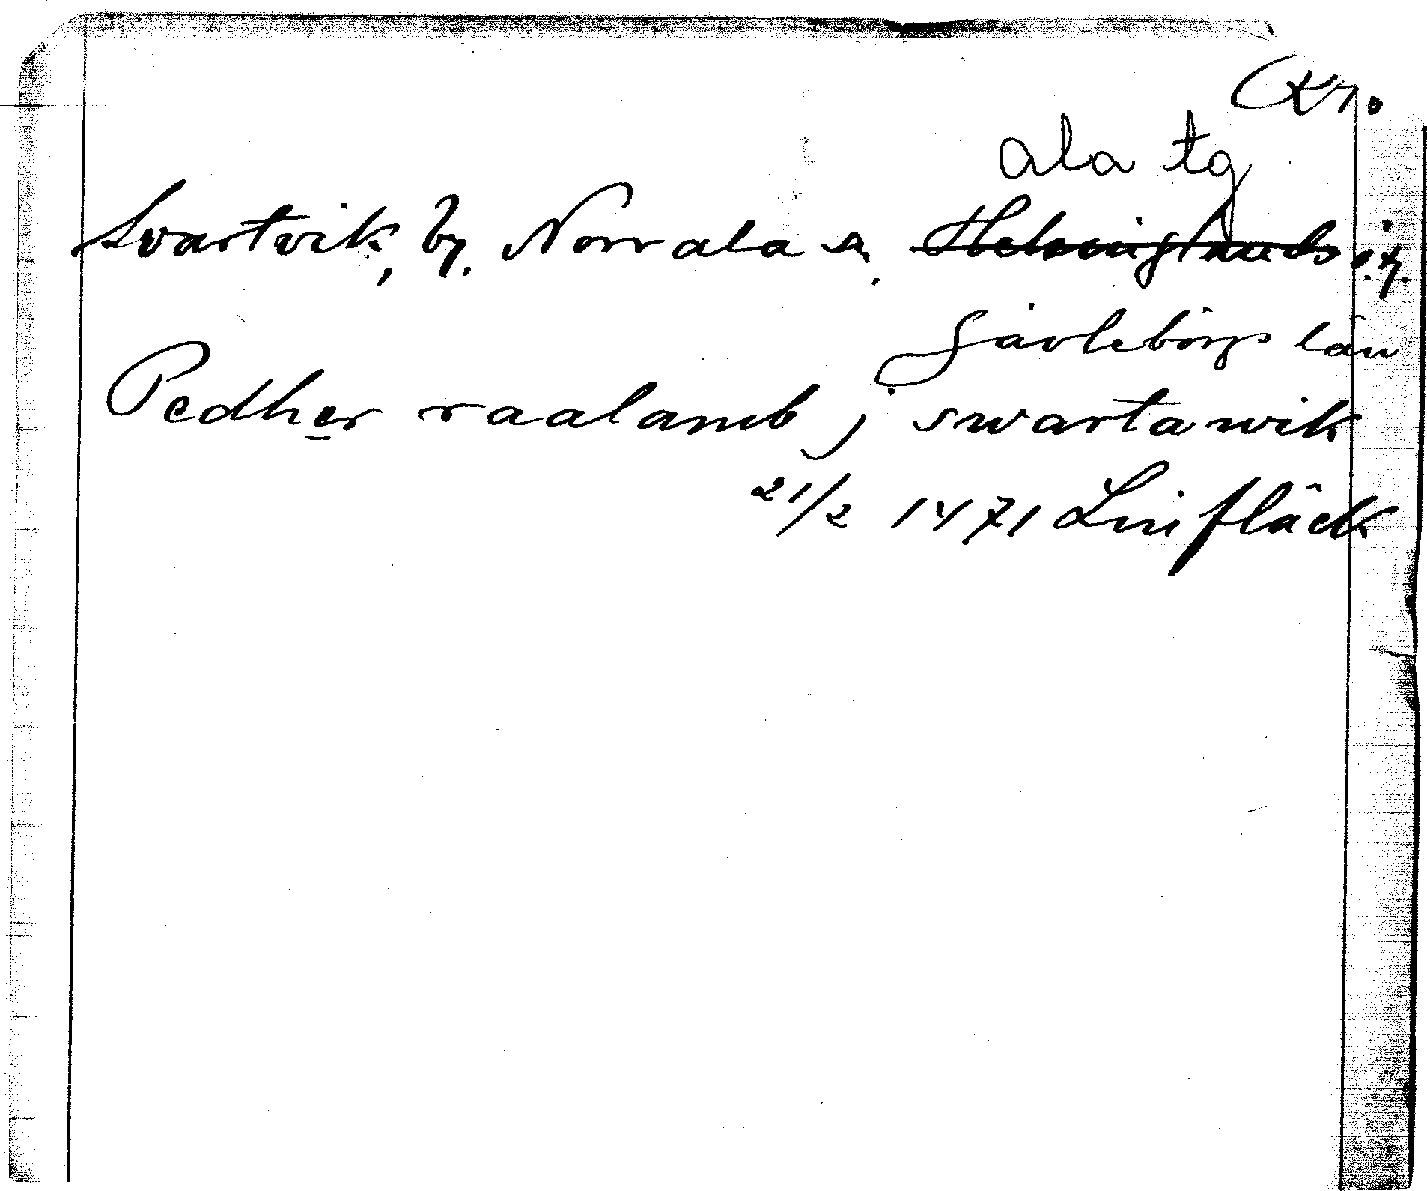 Kr.
ala tg
Svartvik, by. Norrala sn. Helsinglands
Gävleborgs län
Pedher raalamb j swartawik
21/2 1471 Linfläck